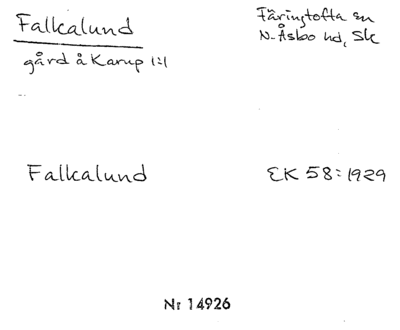 Falkalund
Färingtofta sn
N-Åsbo hd, Sk
gård å Karup 1:1
Falkalund
EK 58:1929
Nr 14926